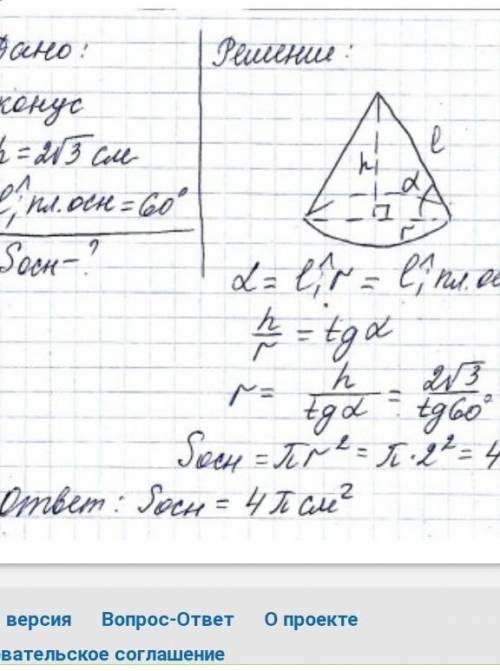 Дано:
конус
h = 2√3 см
l,^ пл. осн = 60°
Sосн - ?
Решение:
l
h
α
r
α = l,^ r = l,^ пл. ос
h/r = tg α
r = h/tgα = 2√3/tg60°
Sосн = πr² = π·2² = 4
Ответ: Sосн = 4π см²
версия Вопрос-Ответ О проекте
овательское соглашение